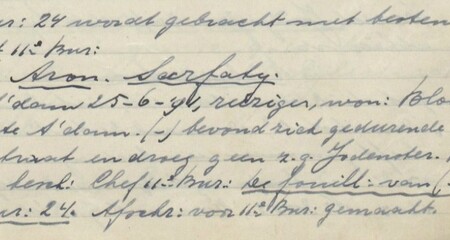 ur: 24 wordt gebracht met besten
11e Bur:
Aron. Sarfaty.
A'dam 25-6-91, reiziger, won: Blo
te A'dam. (-) bevond zich gedurende
straat en droeg geen z.g. Jodenster.
bevel: Chef 11e Bur: de Jouill: van (-
ur: 24. Afschr: voor 11e Bur: gemaakt.